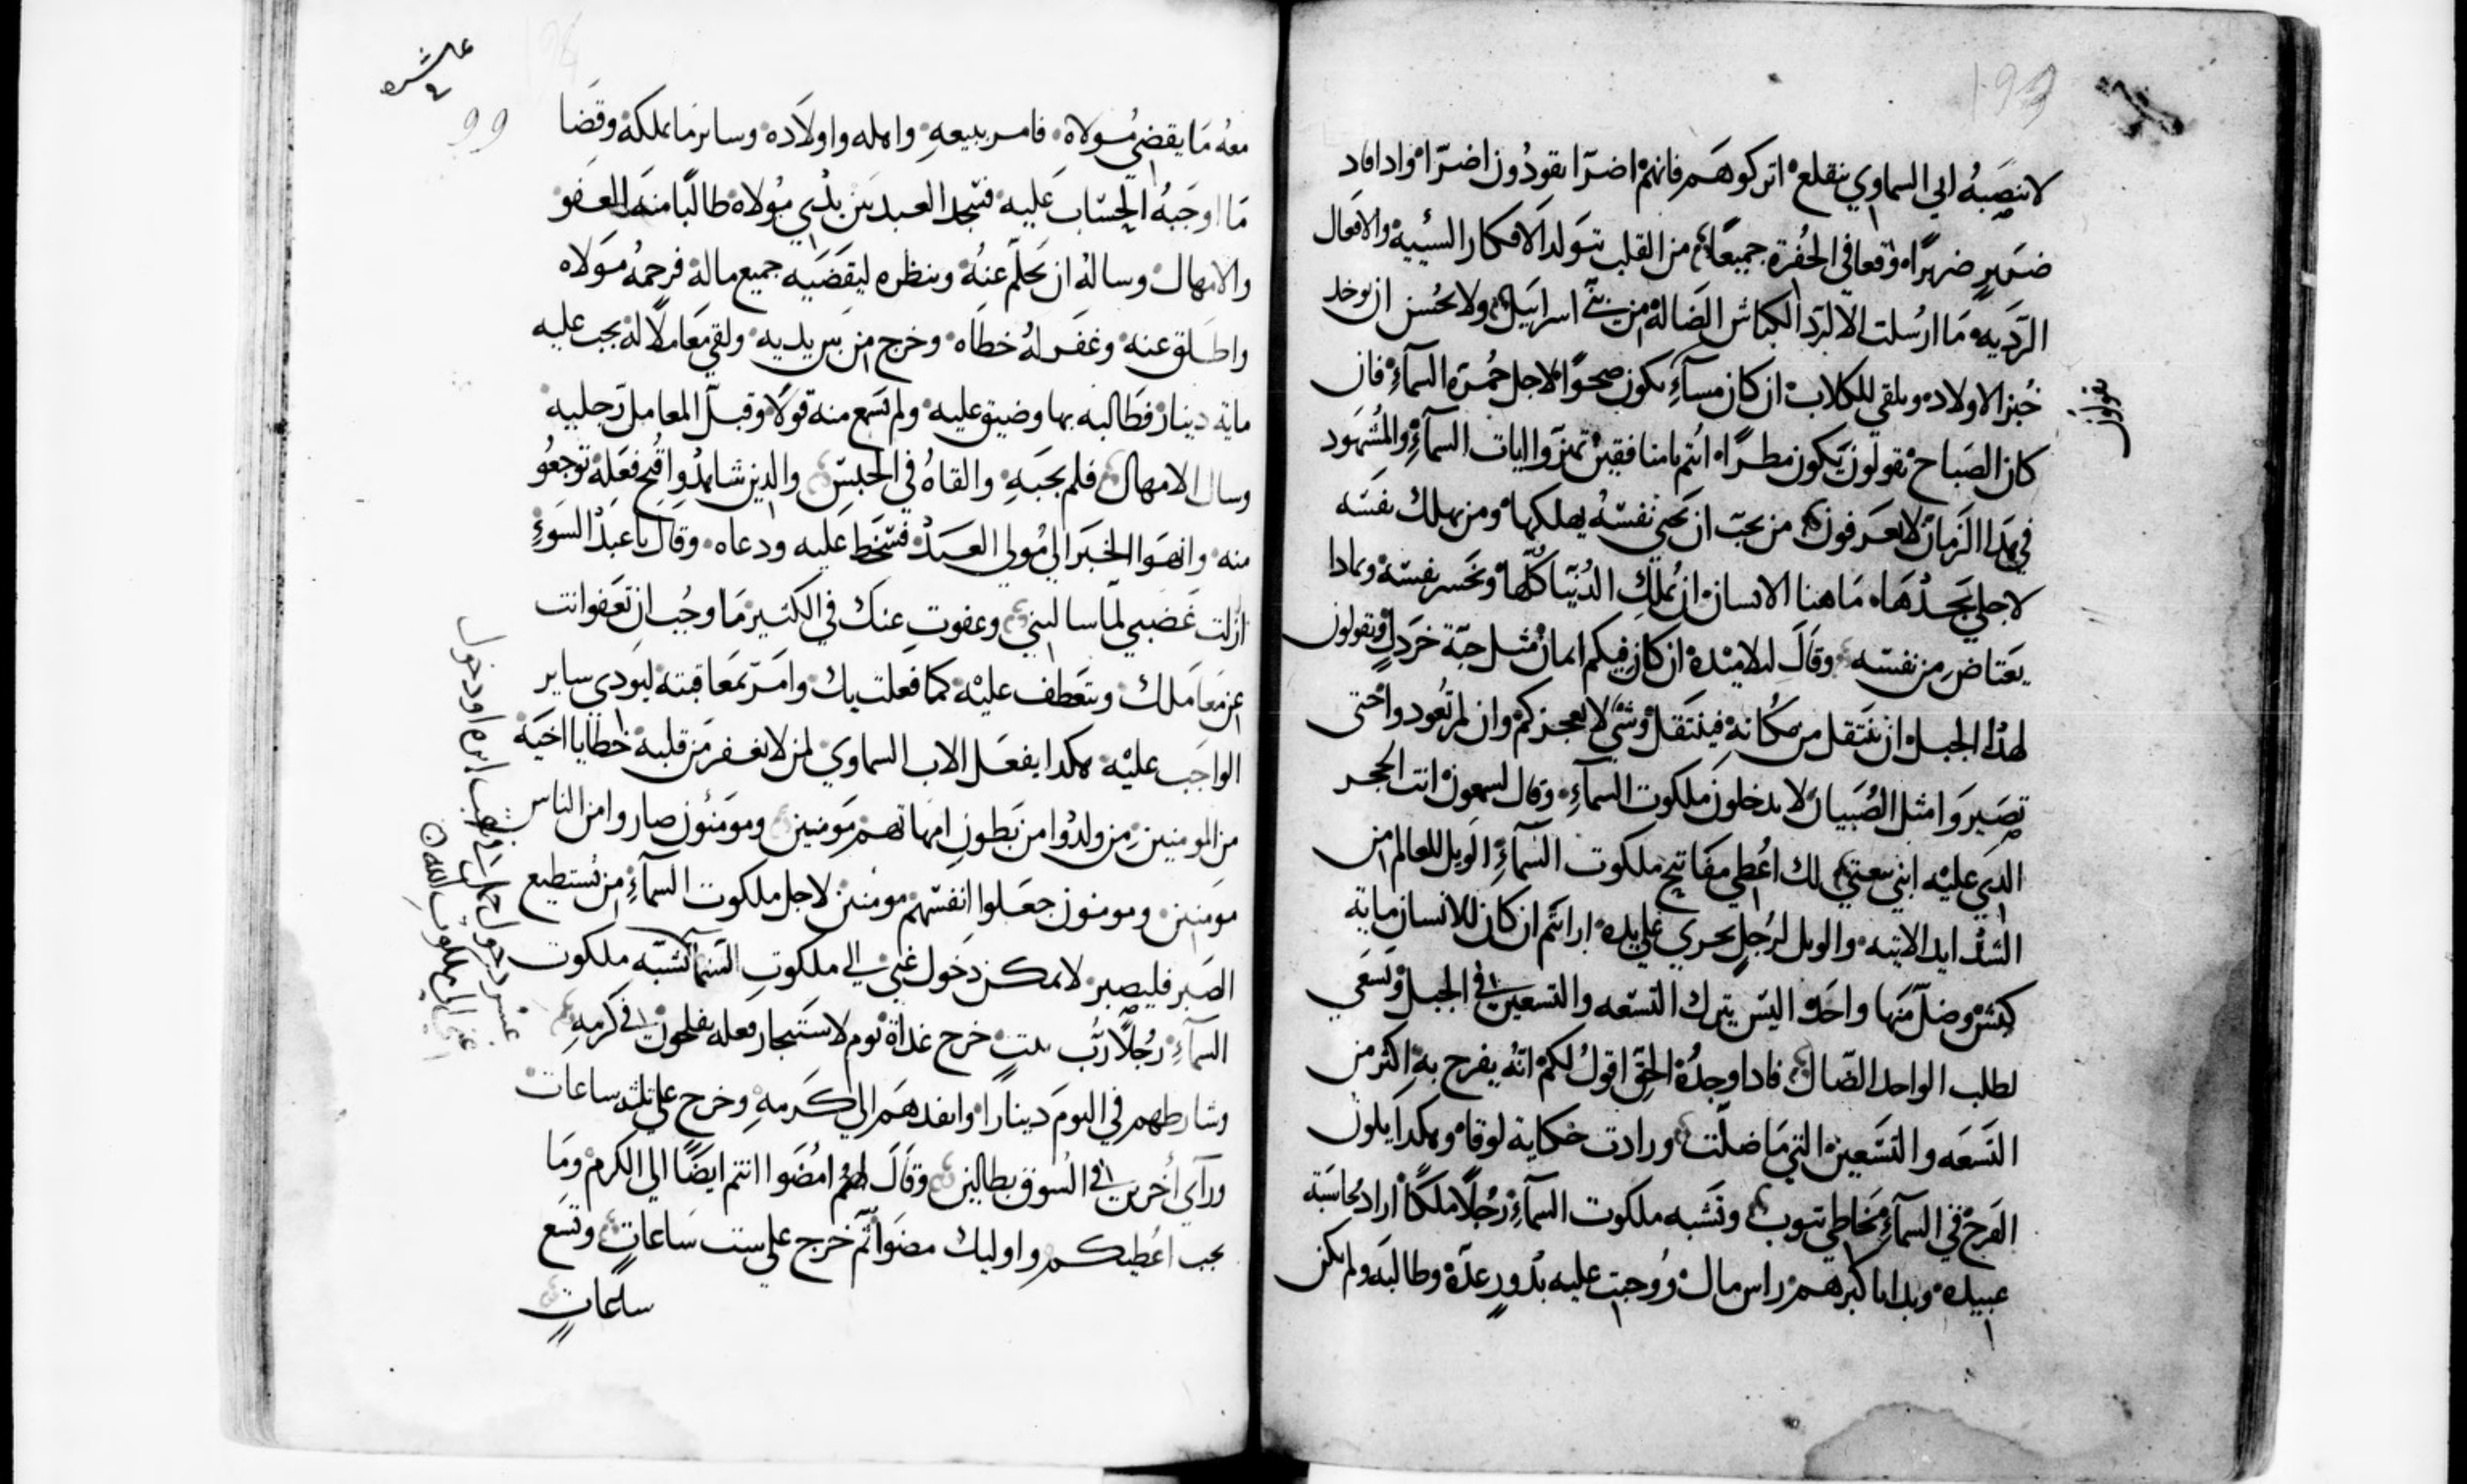 لا ينصبه ابي السماوي ينقلع اتركوهم فانهم اضرّا يقودون اضرّا واذا قاد
ضرير ضريرًا وقعا في الحفرة جميعًا من القلب تتولد الافكار السئيية والافعال
الرديه ما ارسلت الا لارد الكباش الضالة من بني اسراييل ولا يحسن ان يوخد
خبز الاولاد ويلقي للكلاب ان كان مسآءٍ يكون صحوًا لاجل حمرة السمآءِ فان
كان الصباح تقولون يكون مطرًا انتم يا منافقين تميزوا ايات السمآءِ والمشهود
في هدا الزمان لا تعرفون من يحب ان يحيي نفسه يهلكها ومن يهلك نفسه
لاجلي يجدها ما هنا الانسان ان يملك الدنيا كلها ويخسر نفسه وبمادا
يعتاض من نفسه وقال لتلاميده ان كان فيكم ايمان مثل حبّة خردلٍ وتقولون
لهدا الجبل ان ينتقل من مكانه فينتقل وشي لا يعجزكم وان لم تعودوا حتي
تصيروا مثل الصبيان لا تدخلون ملكوت السمآءِ وقال لسمعون انت الحجر
الدي عليه ابني بيعتي لك اعطي مفاتيح ملكوت السمآءِ الويل للعالم من
الشدايد الاتيه والويل لرجلٍ يجري علي يده ارايتم ان كان للانسان ماية
كبش وضلّ منها واحد اليس يترك التسعه والتسعين في الجبل ويسعي
لطلب الواحد الضال فادا وجده الحق اقول لكم انه يفرح به اكثر من
التسعه والتسعين التي ما ضلّت وزادت حكاية لوقا وهكدا يكون
الفرح في السمآءِ بخاطي يتوب وتشبه ملكوت السمآءِ رجلًا ملكًا اراد محاسبة
عبيده وبدا باكبرهم راس مال ووجبت عليه بدور عدّة وطالبه ولم يكن
عاشره
99
معه ما يقضي مولاه فامر ببيعهِ واهله واولاده وساير ما يملكه وقضا
ما اوجبه الحساب عليه فسجد العبد بين يدي مولاه طالبًا منه العفو
والامهال وساله ان يحلم عنه وينظره ليقضيه جميع ماله فرحمه مولاه
واطلق عنه وغفر له خطاه وخرج من بين يديه ولقي معاملًا له يجب عليه
ماية دينار فطالبه بها وضيق عليه ولم يسمع منه قولا وقبل المعامل رجليه
وسال الامهال فلم يجبهِ والقاه في الحبس والدين شاهدوا قبح فعله توجعو
منه وانهوا الخبر الي مولي العبد فسخط عليه ودعاه وقال يا عبد السوءِ
ازلت غضبي لما سالتني وعفوت عنك في الكثير ما وجب ان تعفوا انت
عن معاملك وتتعطف عليه كما فعلت بك وامر بمعاقبته ليودي ساير
الواجب عليه هكدا يفعل الاب السماوي لمن لا يغفر من قلبه خطايا اخيه
من المومنين من ولدوا من بطون امهاتهم مومنين ومومنون صاروا من الناس
مومنين ومومنون جعلوا انفسهم مومنين لاجل ملكوت السمآءِ من يستطيع
الصبر فليصبر لا يمكن دخول غني الي ملكوت السما تشبه ملكوت
السمآءِ رجلًا ربّ بيتٍ خرج غداة يوم لاستيجار فعله يفلحون في كرمهِ
وشارطهم في اليوم دينارًا وانفدهم الي كرمهِ وخرج علي ثلثه ساعات
وراي اخرين في السوق بطالين وقال لهم امضوا انتم ايضًا الي الكرم وما
يجب اعطيكم واوليك مضوا ثم خرج علي ست ساعاتٍ وتسع
ساعاتٍ